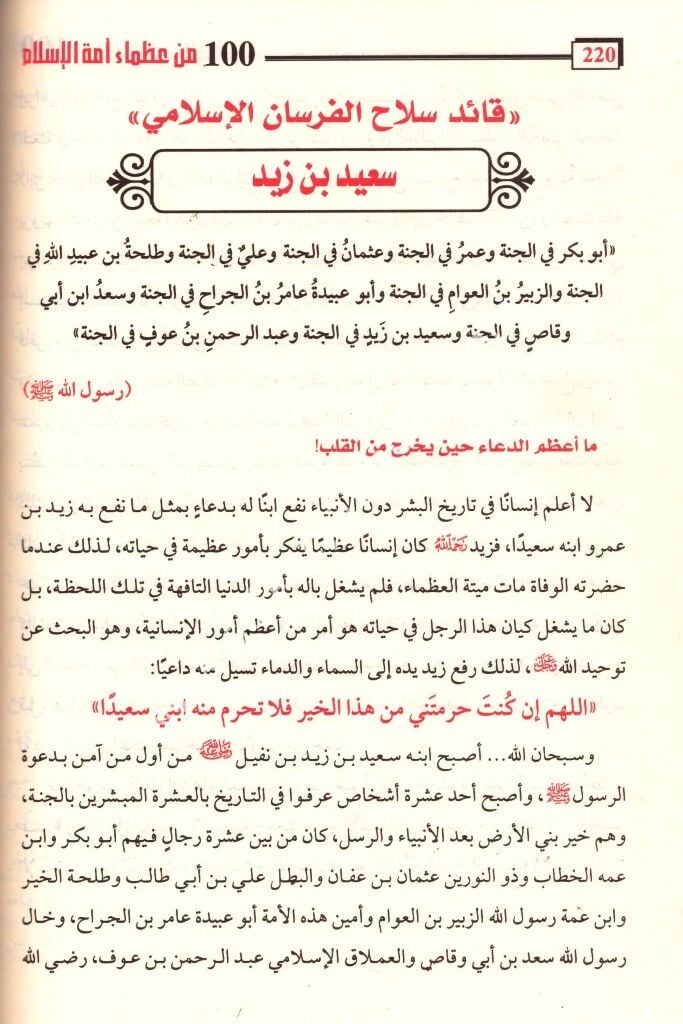 220
100 من عظماء أمة الإسلام
«قائد سلاح الفرسان الإسلامي»
سعيد بن زيد
«أبو بكر في الجنة وعمرُ في الجنة وعثمانُ في الجنة وعليٌ في الجنة وطلحةُ بن عبيدِ اللهِ في
الجنة والزبيرُ بنُ العوامِ في الجنة وأبو عبيدةُ عامرُ بنُ الجراحِ في الجنة وسعدُ ابن أبي
وقاصٍ في الجنة وسعيد بن زَيدٍ في الجنة وعبد الرحمنِ بنُ عوفٍ في الجنة»
(رسول الله ﷺ)
ما أعظم الدعاء حين يخرج من القلب!
لا أعلم إنسانًا في تاريخ البشر دون الأنبياء نفع ابنًا له بدعاءٍ بمثل ما نفع به زيد بن
عمرو ابنه سعيدًا، فزيد رَحِمَهُ اللهُ كان إنسانًا عظيمًا يفكر بأمور عظيمة في حياته، لذلك عندما
حضرته الوفاة مات ميتة العظماء، فلم يشغل باله بأمور الدنيا التافهة في تلك اللحظة، بل
كان ما يشغل كيان هذا الرجل في حياته هو أمر من أعظم أمور الإنسانية، وهو البحث عن
توحيد الله ﷻ، لذلك رفع زيد يده إلى السماء والدماء تسيل منه داعيًا:
«اللهم إن كُنتَ حرمتَني من هذا الخير فلا تحرم منه ابني سعيدًا»
وسبحان الله... أصبح ابنه سعيد بن زيد بن نفيل رَضِيَ اللهُ عَنْهُ من أول من آمن بدعوة
الرسول ﷺ، وأصبح أحد عشرة أشخاص عرفوا في التاريخ بالعشرة المبشرين بالجنة،
وهم خير بني الأرض بعد الأنبياء والرسل، كان من بين عشرة رجالٍ فيهم أبو بكر وابن
عمه الخطاب وذو النورين عثمان بن عفان والبطل علي بن أبي طالب وطلحة الخير
وابن عمة رسول الله الزبير بن العوام وأمين هذه الأمة أبو عبيدة عامر بن الجراح، وخال
رسول الله سعد بن أبي وقاص والعملاق الإسلامي عبد الرحمن بن عوف، رضي الله